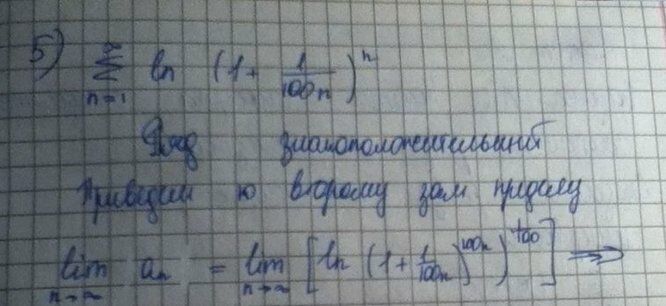 5) ∞ Σ n=1 ln (1 + 1/100n)^n
Ряд знакоположительный
Приведем ко второму зам пределу
lim n→∞ an = lim n→∞ [ln (1 + 1/100n)^100n)^1/100] ⇒